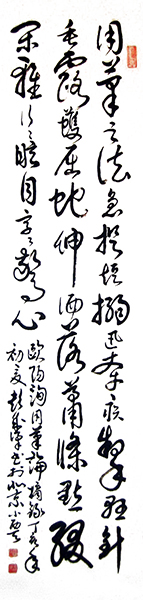 用筆之法急捉短搦迅牽疾掣懸針
垂露蠖屈蛇伸洒落蕭條點綴
閑雅行行眩目字字驚心
歐陽詢用筆論摘錄丁亥年
初夏彭
書於北京